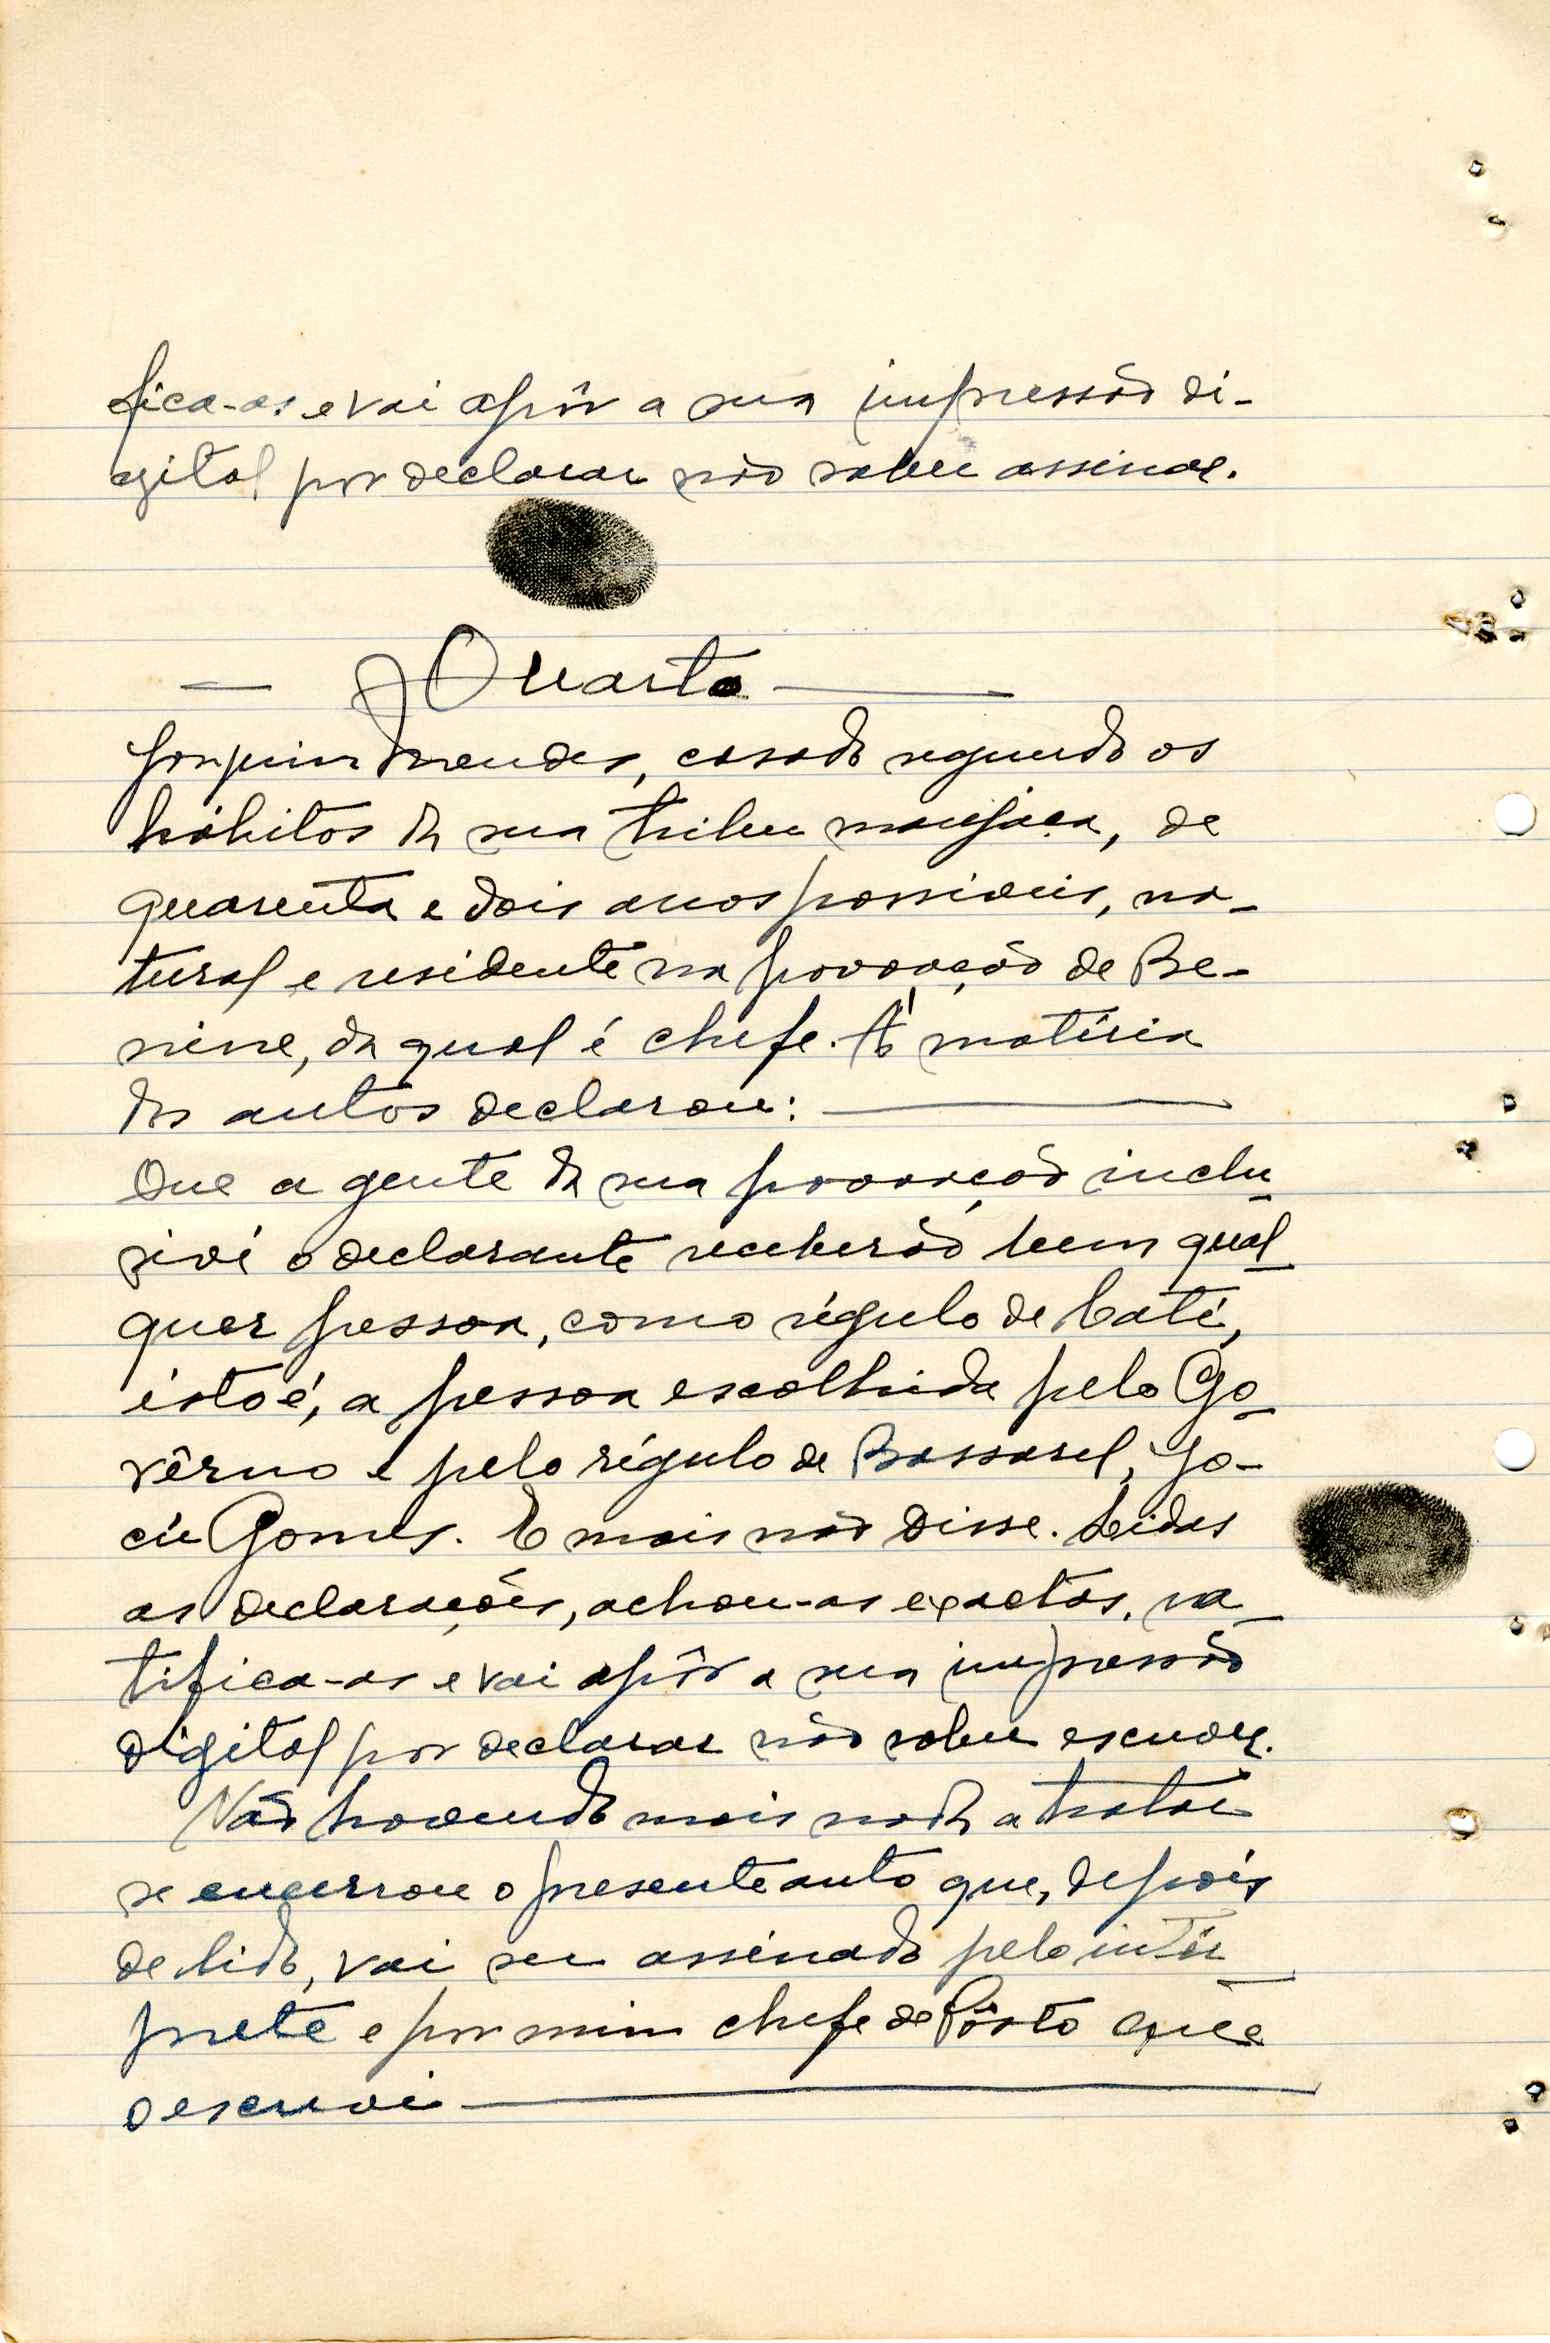 fica-as e vai apôr a sua impressão di-
gital por declarar não saber assinar.
— Quarto —
Joaquim Mendes, casado segundo os
hábitos da sua tribu manjaca, de
quarenta e dois anos possiveis, na-
tural e residente na povoação de Be-
nine, da qual é chefe. Á matéria
dos autos declarou: —
Que a gente da sua povoação inclu
sivé o declarante receberão bem qual
quer pessoa, como régulo de Caté,
isto é, a pessoa escolhida pelo Go
vêrno e pelo régulo de Bassarel, Ja-
cú Gomes. E mais não disse. Lidas
as declarações, achou-as exactas, ra
tifica-as e vai apôr a sua impressão
digital por declarar não saber escrever.
Não havendo mais nada a tratar
se encerrou o presente auto que, depois
de lido, vai ser assinado pelo intér
prete e por mim chefe de Pôsto que
o escrevi —